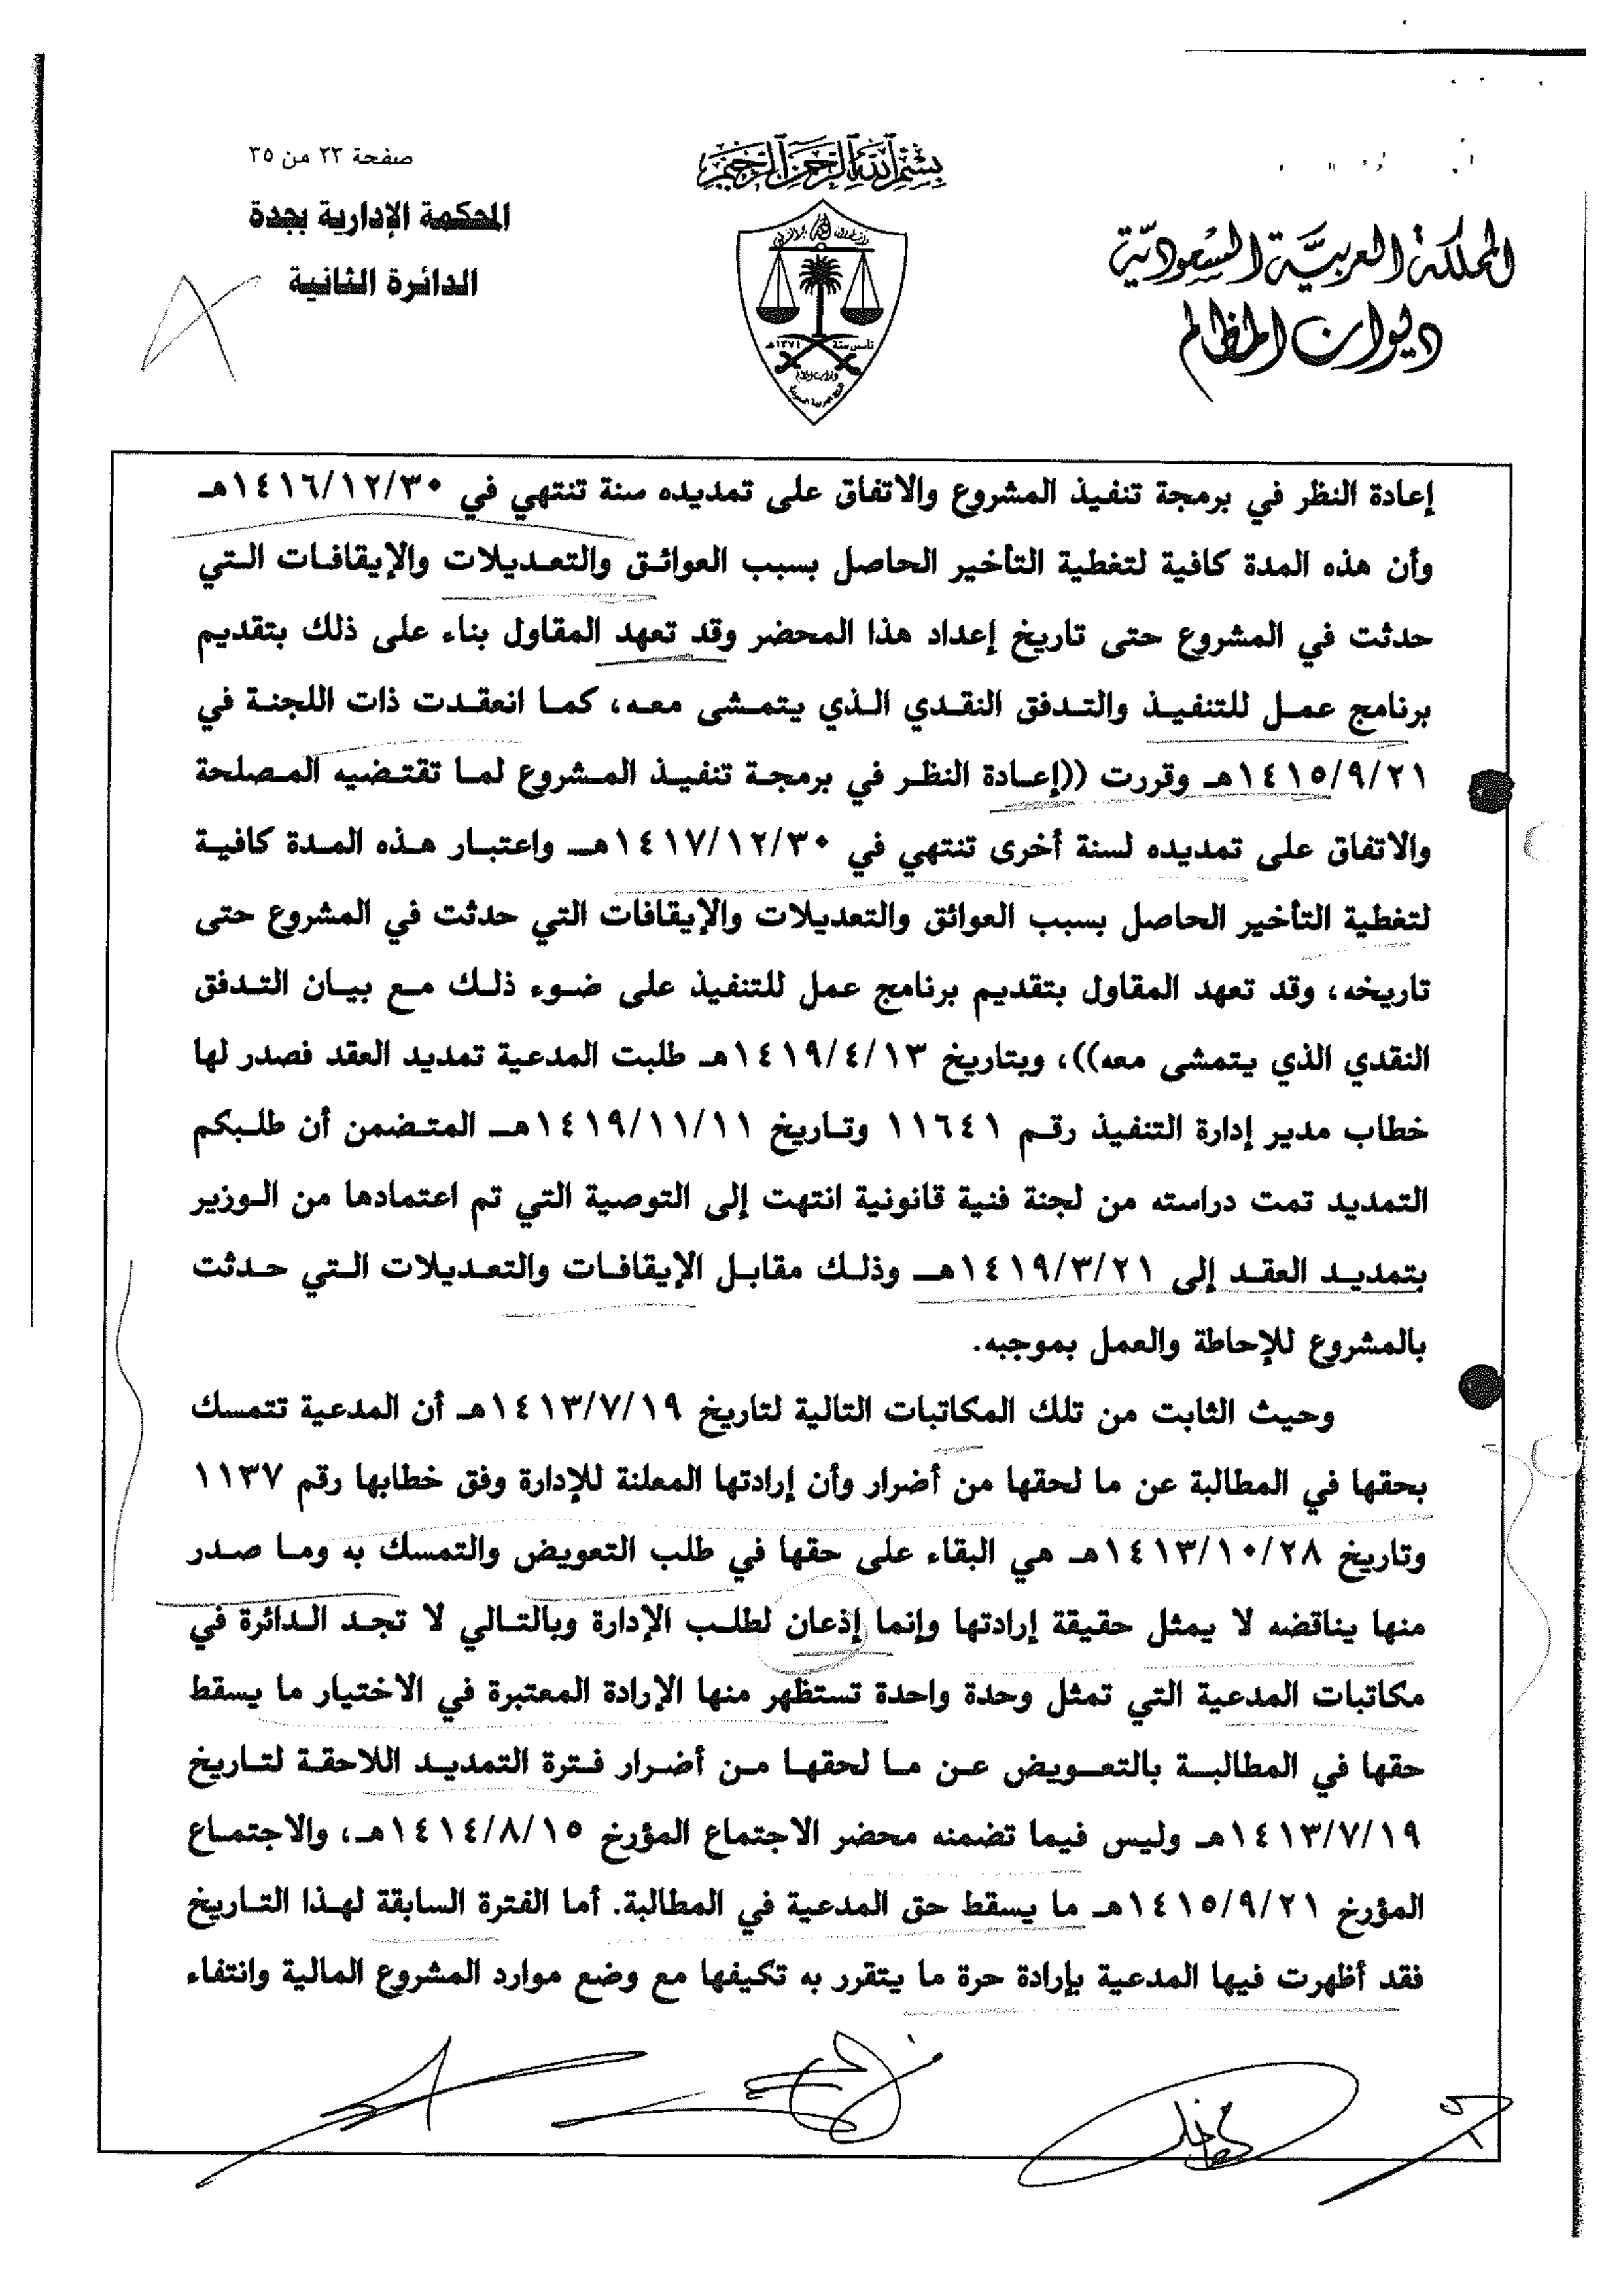 صفحة ٢٣ من ٣٥
بسم الله الرحمن الرحيم
المملكة العربية السعودية
ديوان المظالم
المحكمة الإدارية بجدة
الدائرة الثانية
تأسس سنة ١٣٧٤هـ
إعادة النظر في برمجة تنفيذ المشروع والاتفاق على تمديده سنة تنتهي في ١٤١٦/١٢/٣٠هـ
وأن هذه المدة كافية لتغطية التأخير الحاصل بسبب العوائق والتعديلات والإيقافات التي
حدثت في المشروع حتى تاريخ إعداد هذا المحضر وقد تعهد المقاول بناء على ذلك بتقديم
برنامج عمل للتنفيذ والتدفق النقدي الذي يتمشى معه، كما انعقدت ذات اللجنة في
١٤١٥/٩/٢١هـ وقررت ((إعادة النظر في برمجة تنفيذ المشروع لما تقتضيه المصلحة
والاتفاق على تمديده لسنة أخرى تنتهي في ١٤١٧/١٢/٣٠هـ واعتبار هذه المدة كافية
لتغطية التأخير الحاصل بسبب العوائق والتعديلات والإيقافات التي حدثت في المشروع حتى
تاريخه، وقد تعهد المقاول بتقديم برنامج عمل للتنفيذ على ضوء ذلك مع بيان التدفق
النقدي الذي يتمشى معه))، وبتاريخ ١٤١٩/٤/١٣هـ طلبت المدعية تمديد العقد فصدر لها
خطاب مدير إدارة التنفيذ رقم ١١٦٤١ وتاريخ ١٤١٩/١١/١١هـ المتضمن أن طلبكم
التمديد تمت دراسته من لجنة فنية قانونية انتهت إلى التوصية التي تم اعتمادها من الوزير
بتمديد العقد إلى ١٤١٩/٣/٢١هـ وذلك مقابل الإيقافات والتعديلات التي حدثت
بالمشروع للإحاطة والعمل بموجبه.
وحيث الثابت من تلك المكاتبات التالية لتاريخ ١٤١٣/٧/١٩هـ أن المدعية تتمسك
بحقها في المطالبة عن ما لحقها من أضرار وأن إرادتها المعلنة للإدارة وفق خطابها رقم ١١٣٧
وتاريخ ١٤١٣/١٠/٢٨هـ هي البقاء على حقها في طلب التعويض والتمسك به وما صدر
منها يناقضه لا يمثل حقيقة إرادتها وإنما إذعان لطلب الإدارة وبالتالي لا تجد الدائرة في
مكاتبات المدعية التي تمثل وحدة واحدة تستظهر منها الإرادة المعتبرة في الاختيار ما يسقط
حقها في المطالبة بالتعويض عن ما لحقها من أضرار فترة التمديد اللاحقة لتاريخ
١٤١٣/٧/١٩هـ وليس فيما تضمنه محضر الاجتماع المؤرخ ١٤١٤/٨/١٥هـ، والاجتماع
المؤرخ ١٤١٥/٩/٢١هـ ما يسقط حق المدعية في المطالبة. أما الفترة السابقة لهذا التاريخ
فقد أظهرت فيها المدعية بإرادة حرة ما يتقرر به تكيفها مع وضع موارد المشروع المالية وانتفاء